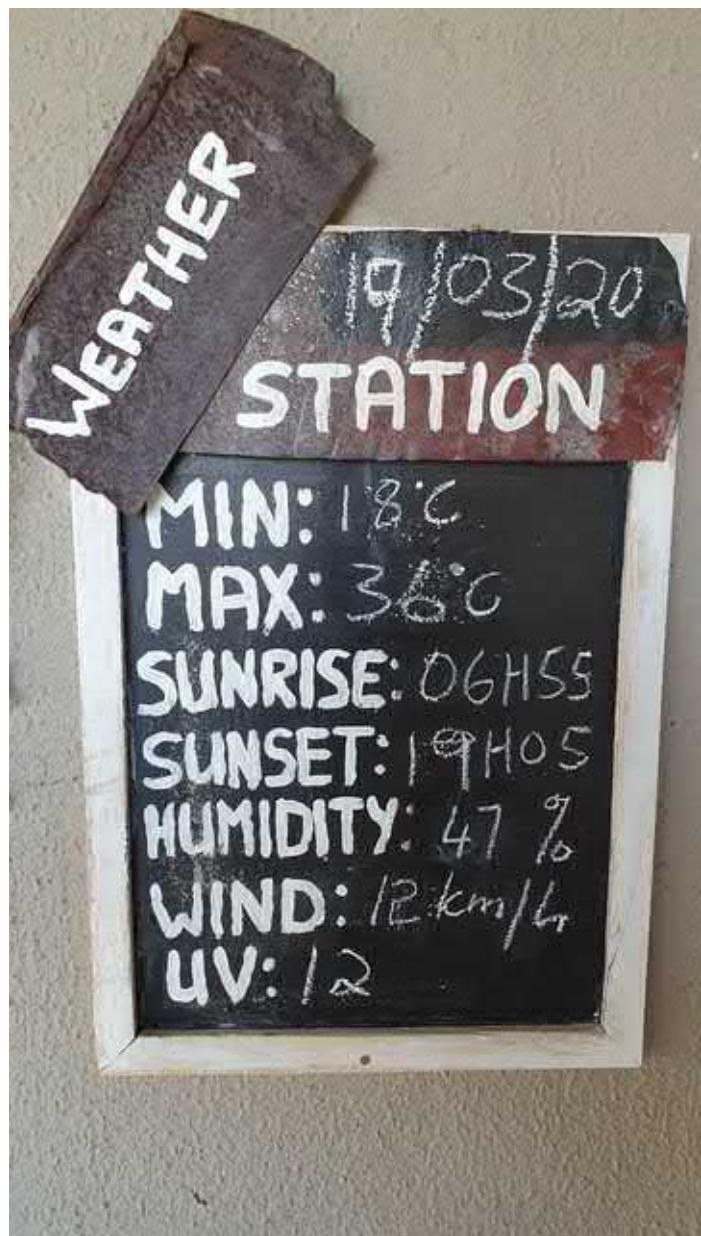 WEATHER
19/03/20
STATION
MIN: 18°C
MAX: 36°C
SUNRISE: 06H55
SUNSET: 19H05
HUMIDITY: 47 %
WIND: 12 km/h
UV: 12